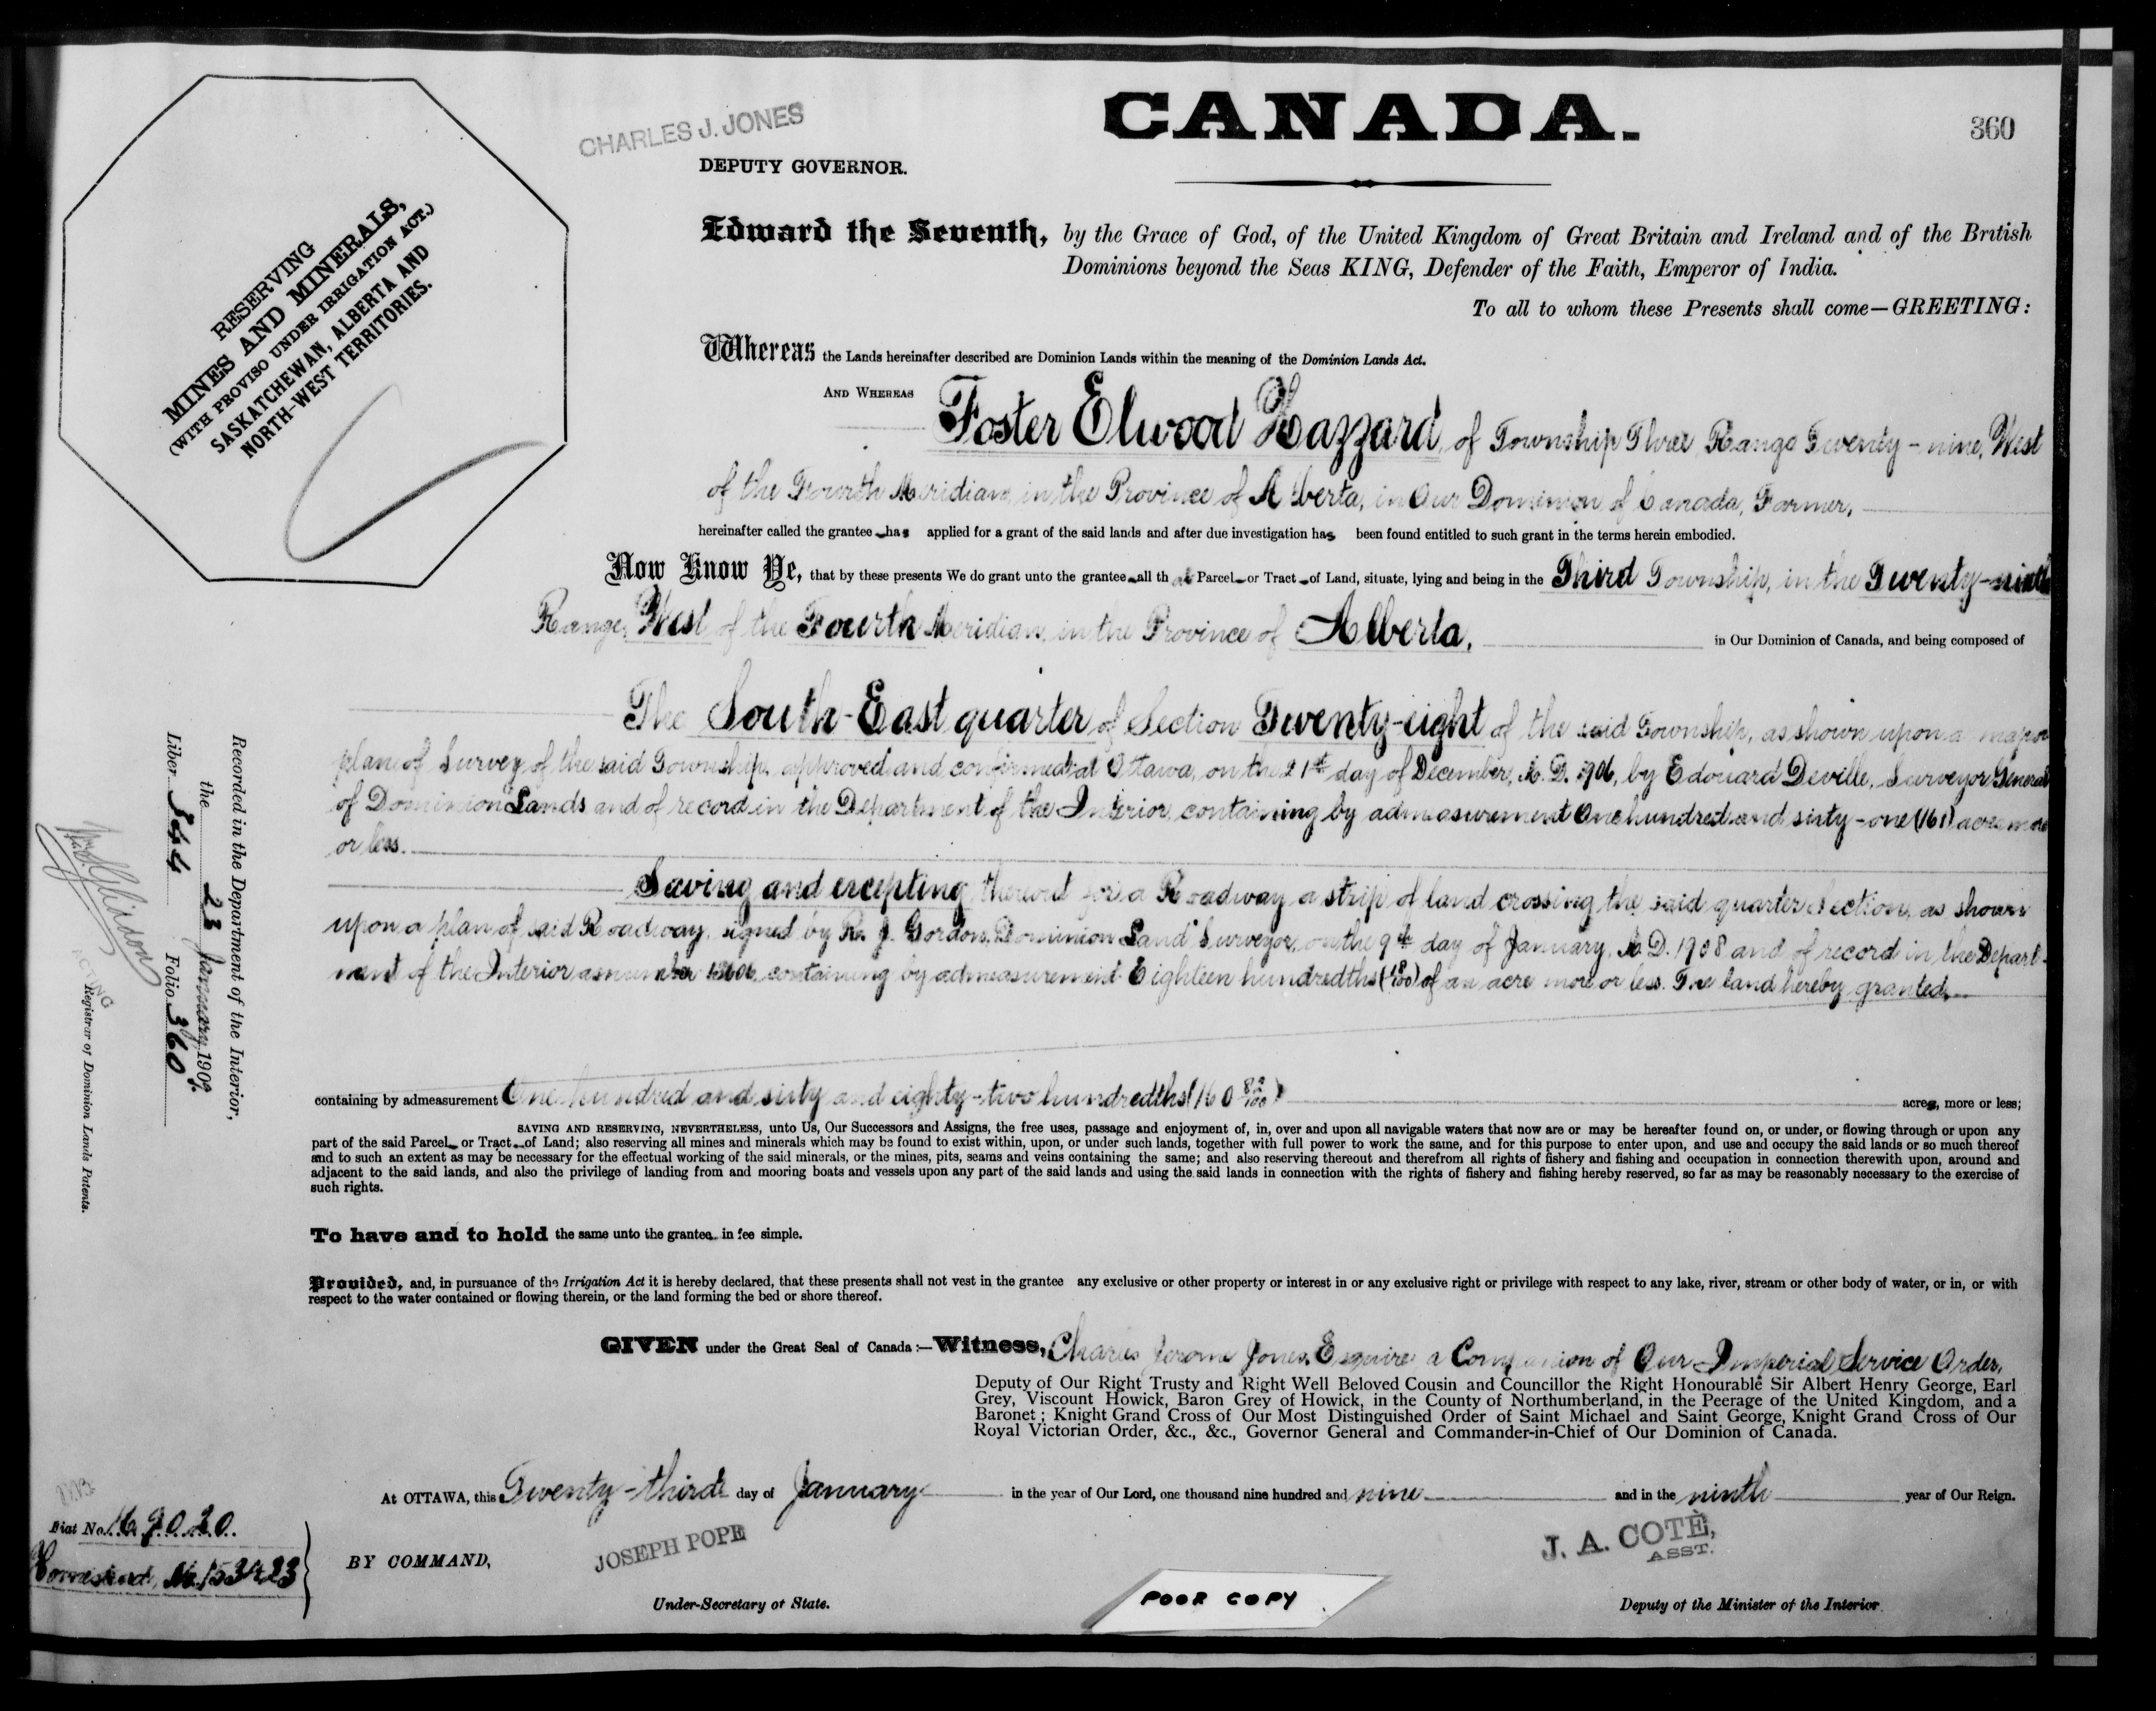 CANADA.
360
CHARLES J. JONES
DEPUTY GOVERNOR.
RESERVING
MINES AND MINERALS,
(WITH PROVISO UNDER IRRIGATION ACT.)
SASKATCHEWAN, ALBERTA AND
NORTH-WEST TERRITORIES.
Edward the Seventh, by the Grace of God, of the United Kingdom of Great Britain and Ireland and of the British
Dominions beyond the Seas KING, Defender of the Faith, Emperor of India.
To all to whom these Presents shall come—GREETING:
Whereas the Lands hereinafter described are Dominion Lands within the meaning of the Dominion Lands Act.
AND WHEREAS Foster Elwood Hazzard, of Township Three Range Twenty-nine, West
of the Fourth Meridian, in the Province of Alberta, in Our Dominion of Canada, Farmer,
hereinafter called the grantee has applied for a grant of the said lands and after due investigation has been found entitled to such grant in the terms herein embodied.
Now Know Ye, that by these presents We do grant unto the grantee all that Parcel or Tract of Land, situate, lying and being in the Third Township, in the Twenty-ninth
Range, West of the Fourth Meridian, in the Province of Alberta, in Our Dominion of Canada, and being composed of
The South-East quarter of Section Twenty-eight of the said Township, as shown upon a map or
plan of Survey of the said Township, approved and confirmed at Ottawa, on the 21st day of December, A.D. 1906, by Edouard Deville, Surveyor General
of Dominion Lands and of record in the Department of the Interior, containing by admeasurement One hundred and sixty-one (161) acres more
or less.
Saving and excepting thereout for a Roadway a strip of land crossing the said quarter Section, as shown
upon a plan of said Roadway, signed by R. J. Gordon, Dominion Land Surveyor, on the 9th day of January, A.D. 1908 and of record in the Depart-
ment of the Interior as number containing by admeasurement Eighteen hundredths (18/100) of an acre more or less. The land hereby granted,
containing by admeasurement One hundred and sixty and eighty-two hundredths (160 82/100) acres, more or less;
SAVING AND RESERVING, NEVERTHELESS, unto Us, Our Successors and Assigns, the free uses, passage and enjoyment of, in, over and upon all navigable waters that now are or may be hereafter found on, or under, or flowing through or upon any
part of the said Parcel or Tract of Land; also reserving all mines and minerals which may be found to exist within, upon, or under such lands, together with full power to work the same, and for this purpose to enter upon, and use and occupy the said lands or so much thereof
and to such an extent as may be necessary for the effectual working of the said minerals, or the mines, pits, seams and veins containing the same; and also reserving thereout and therefrom all rights of fishery and fishing and occupation in connection therewith upon, around and
adjacent to the said lands, and also the privilege of landing from and mooring boats and vessels upon any part of the said lands and using the said lands in connection with the rights of fishery and fishing hereby reserved, so far as may be reasonably necessary to the exercise of
such rights.
To have and to hold the same unto the grantee in fee simple.
Provided, and, in pursuance of the Irrigation Act it is hereby declared, that these presents shall not vest in the grantee any exclusive or other property or interest in or any exclusive right or privilege with respect to any lake, river, stream or other body of water, or in, or with
respect to the water contained or flowing therein, or the land forming the bed or shore thereof.
GIVEN under the Great Seal of Canada:—Witness, Charles Jerome Jones, Esquire a Companion of Our Imperial Service Order,
Deputy of Our Right Trusty and Right Well Beloved Cousin and Councillor the Right Honourable Sir Albert Henry George, Earl
Grey, Viscount Howick, Baron Grey of Howick, in the County of Northumberland, in the Peerage of the United Kingdom, and a
Baronet; Knight Grand Cross of Our Most Distinguished Order of Saint Michael and Saint George, Knight Grand Cross of Our
Royal Victorian Order, &c., &c., Governor General and Commander-in-Chief of Our Dominion of Canada.
At OTTAWA, this Twenty-third day of January in the year of Our Lord, one thousand nine hundred and nine and in the ninth year of Our Reign.
BY COMMAND,
JOSEPH POPE
Under-Secretary of State.
J. A. COTÈ,
ASST.
Deputy of the Minister of the Interior.
POOR COPY
Fiat No. 169020.
Homestead, No. 153423
Recorded in the Department of the Interior,
the 23 January 1909.
Liber 344 Folio 360
ACTING
Registrar of Dominion Lands Patents.